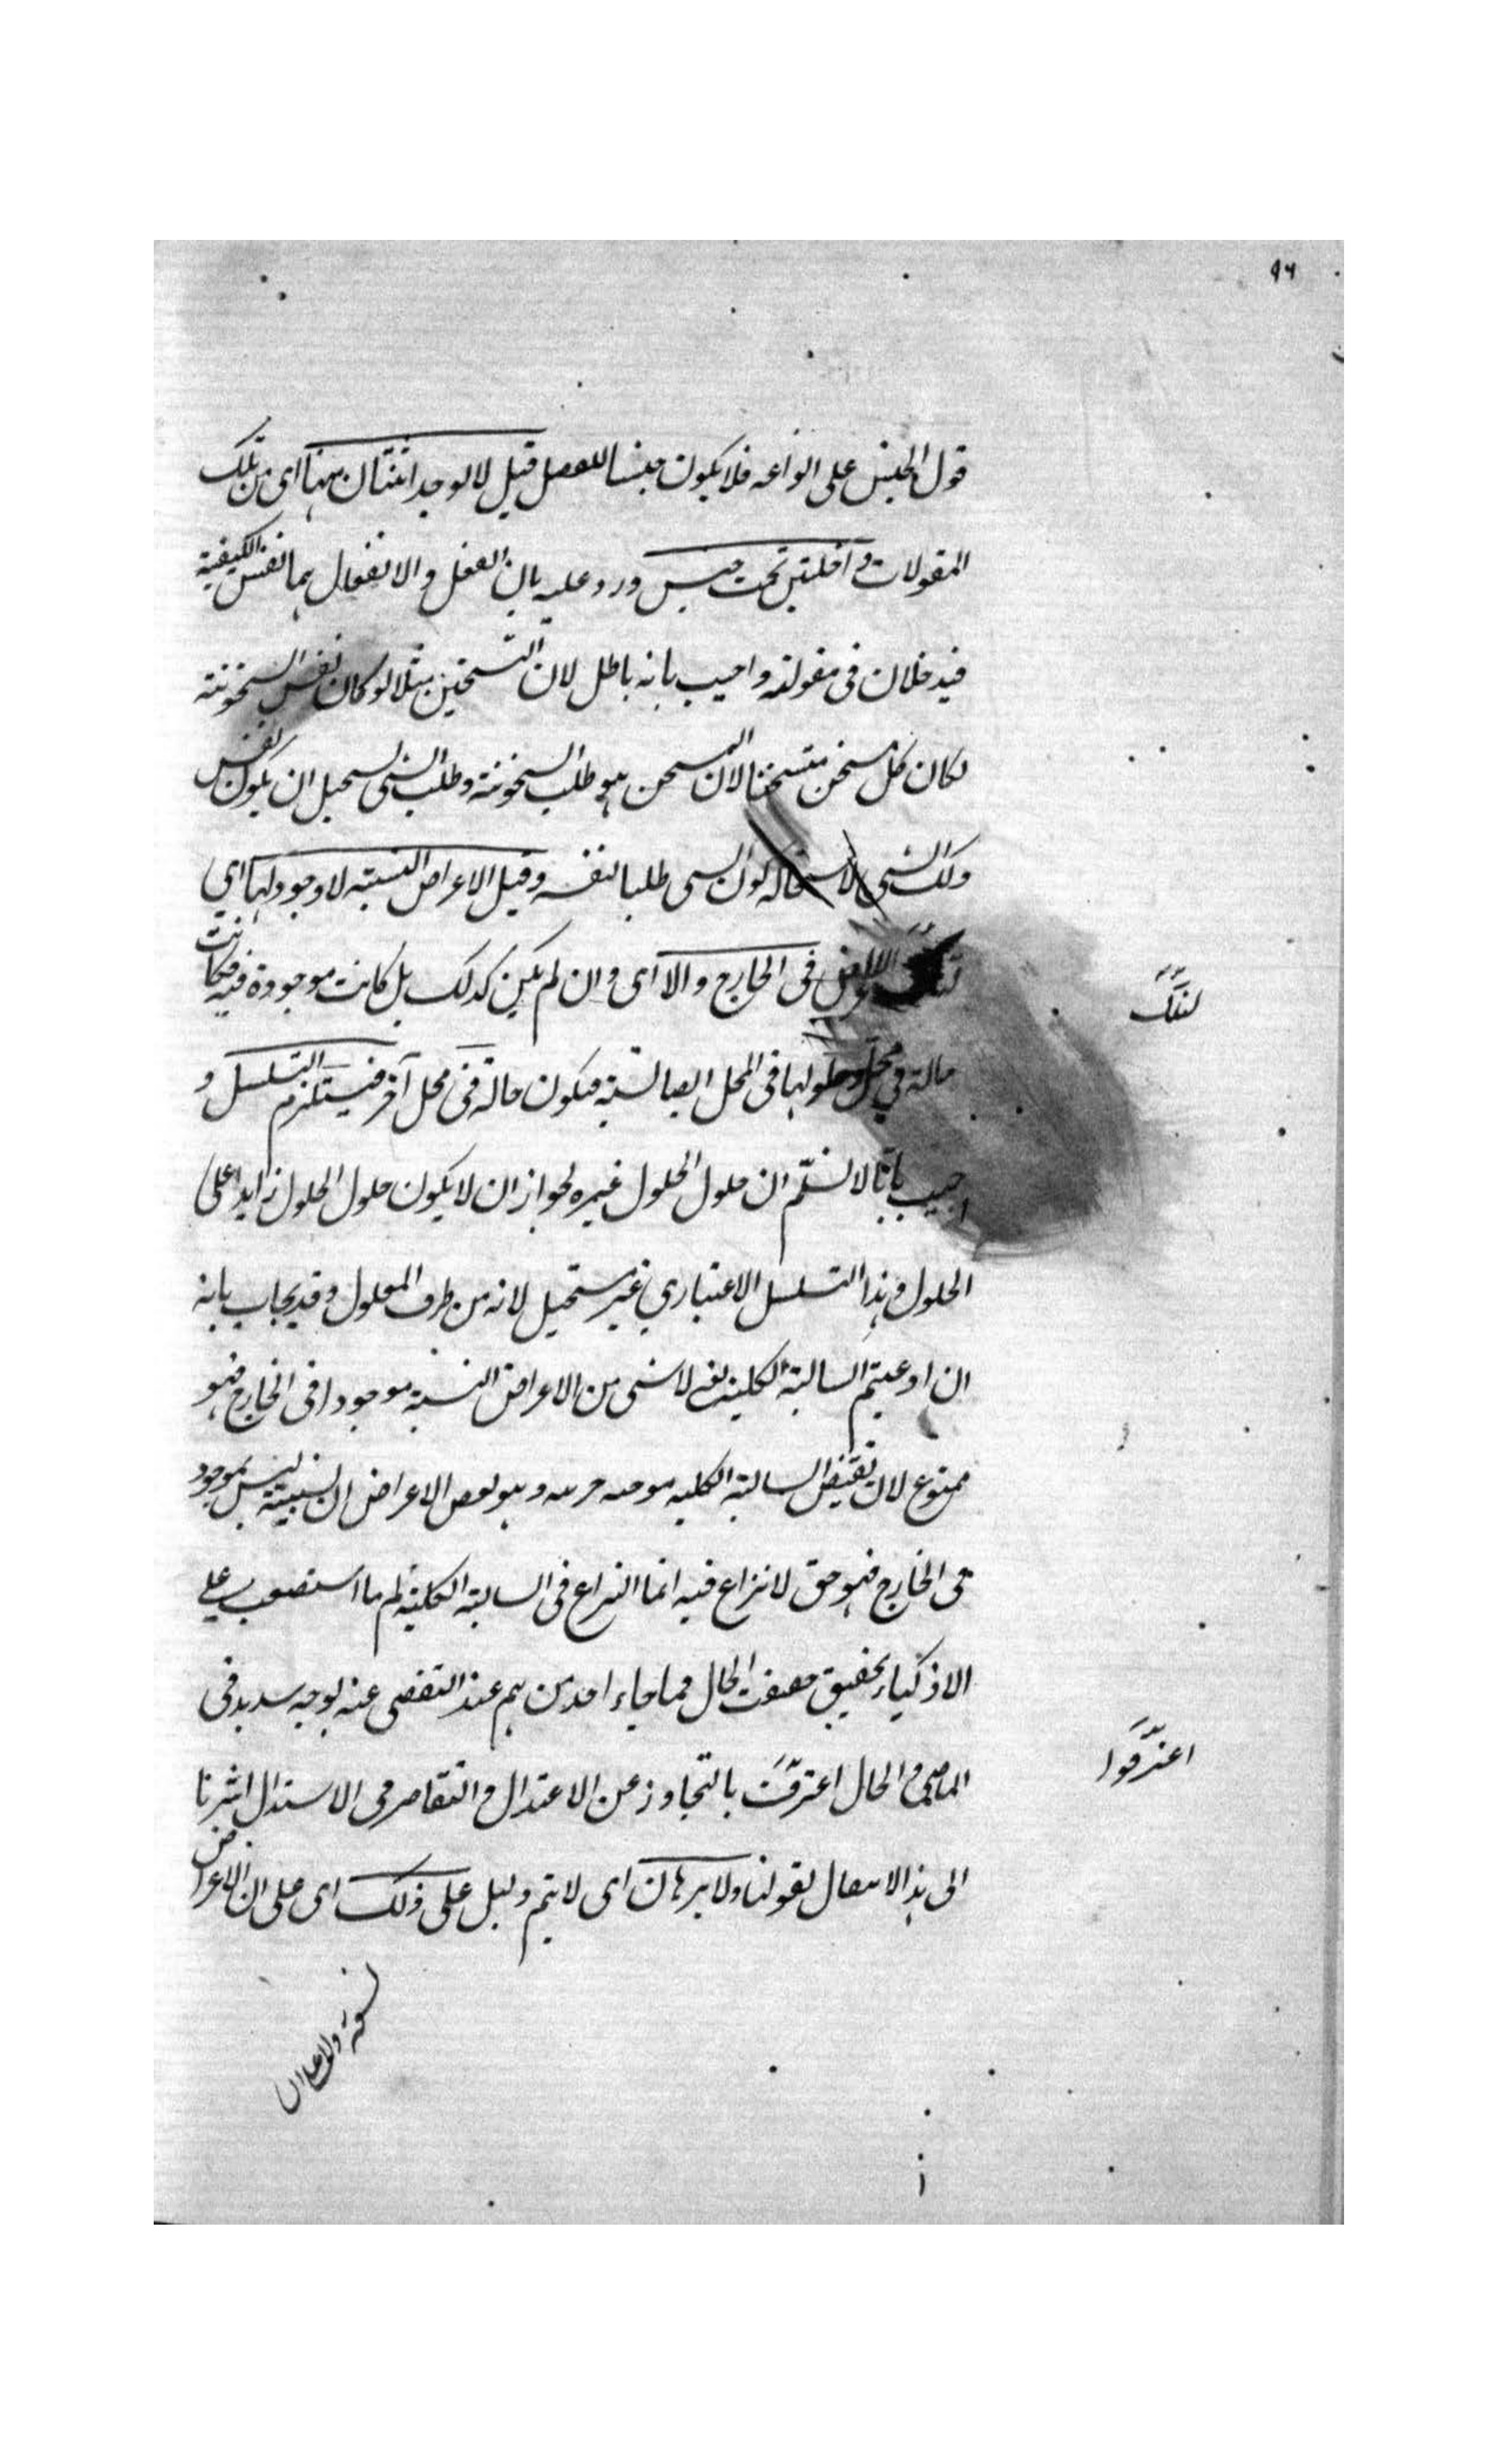 ٩٦
قول الجنس على انواعه فلا يكون جنسا للفصل قيل لا يوجد اثنتان منها اى من تلك
المقولات داخلتين تحت جنس ورد عليه بان الفعل والانفعال هما نفس الكيفية
فيدخلان فى مقولته واجيب بانه باطل لان التسخين مثلا لو كان نفس السخونة
لكان كل مسخن متسخنا لان التسخن هو طلب السخونة وطلب الشى يستحيل ان يكون نفس
ذلك الشى لاستحالة كون الشى طلبا لنفسه وقيل الاعراض النسبية لا وجود لها اى
لتلك الاعراض فى الخارج والا اى وان لم يكن كذلك بل كانت موجودة فيه فكانت
لتلك
حالة فى محل وحلولها فى المحل ايضا نسبة فيكون حالة فى محل آخر فيستلزم التسلسل و
اجيب بانا لا نسلم ان حلول الحلول غيره لجواز ان لا يكون حلول الحلول زايدا على
الحلول وهذا التسلسل الاعتباري غير مستحيل لانه من طرف المعلول وقد يجاب بانه
ان ادعيتم السالبة الكلية لاشى من الاعراض النسبية موجودا فى الخارج فهو
ممنوع لان نقيض السالبة الكلية موجبة جزيية وهو بعض الاعراض النسبية ليس بموجود
فى الخارج فهو حق لا نزاع فيه انما النزاع فى السالبة الكلية ثم ما استصعب على
الاذكياء تحقيق حقيقت الحال فما جاء احد من هم عند التفصى عنه بوجه سديد فى
الماضى والحال اعترفت بالتجاوز عن الاعتدال والتقاصر فى الاستدلال اشرنا
اعترفوا
الى هذا بقولنا ولا برهان اى لا يتم دليل على ذلك اى على ان الاعراض